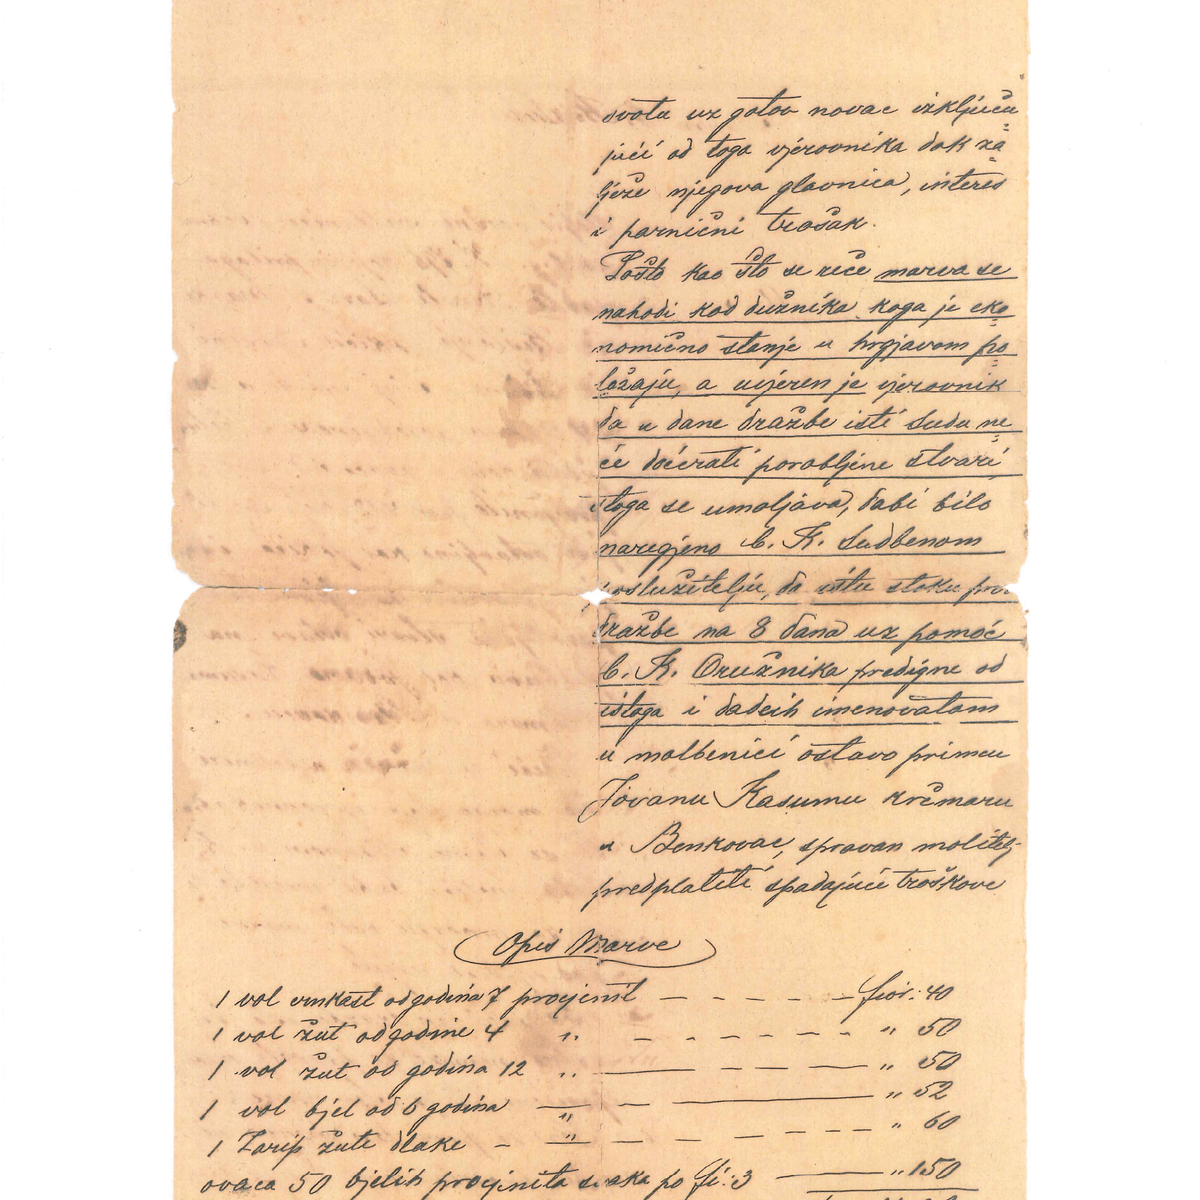 svotu uz gotov novac izključu
jući od toga vjerovnika dok za
ljeze njegova glavnica, interes
i parnični trošak.
Pošto kao što se reče marva se
nahodi kod dužnika koga je eko
nomično stanje u hrgjavom po
ložaju, a uvjeren je vjerovnik
da u dane dražbe isti Sudu ne
će doćerati porobljene stvari,
stoga se umoljava, dabi bilo
naregjeno C. K. Sudbenom
poslužitelju, da istu stoku pri
dražbe na 8 dana uz pomoć
C. K. Oružnika predigne od
istoga i dadeih imenovatom
u molbenici ostavo primcu
Jovanu Kasumu krčmaru
u Benkovac, spravan molitelj
predplatiti spadajuće troškove
Opis Marve
1 vol vinkast od godina 7 procjenit — — — — fior: 40
1 vol žut od godine 4 " — — — — " 50
1 vol žut od godina 12 " — — " 50
1 vol bjel od 6 godina — " — — " 52
1 Zarip žute dlake — " — — — — " 60
ovaca 50 bjelih procjenita svaka po fi: 3 — " 150